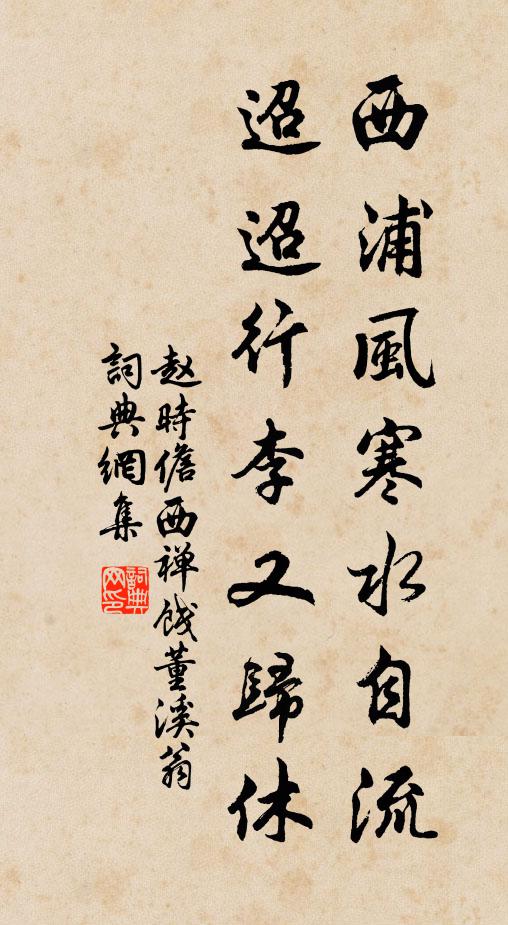 西浦風寒水自流
迢迢行李又歸休
赵時儋西禅饯董溪翁
詞典網集
詞典网印